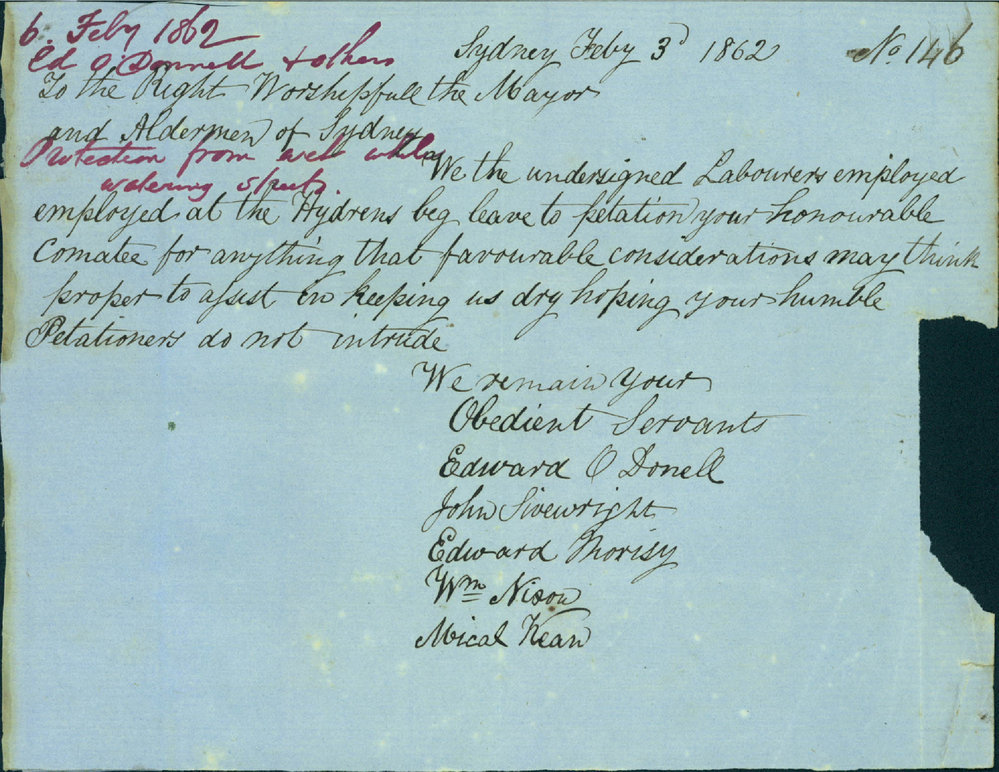 6. Feby 1862
Ed O'Donnell & others
Sydney Feby 3d 1862
No 146
To the Right Worshipfull the Mayor
and Aldermen of Sydney
Protection from wet while
watering streets.
We the undersigned Labourers employed
employed at the Hydrens beg leave to petation your honourable
Comatee for anything that favourable considerations may think
proper to assist in keeping us dry hoping your humble
Petationers do not intrude
We remain your
Obedient Servants
Edward O Donell
John Sivewright
Edward Morisy
Wm Nixon
Mical Kean